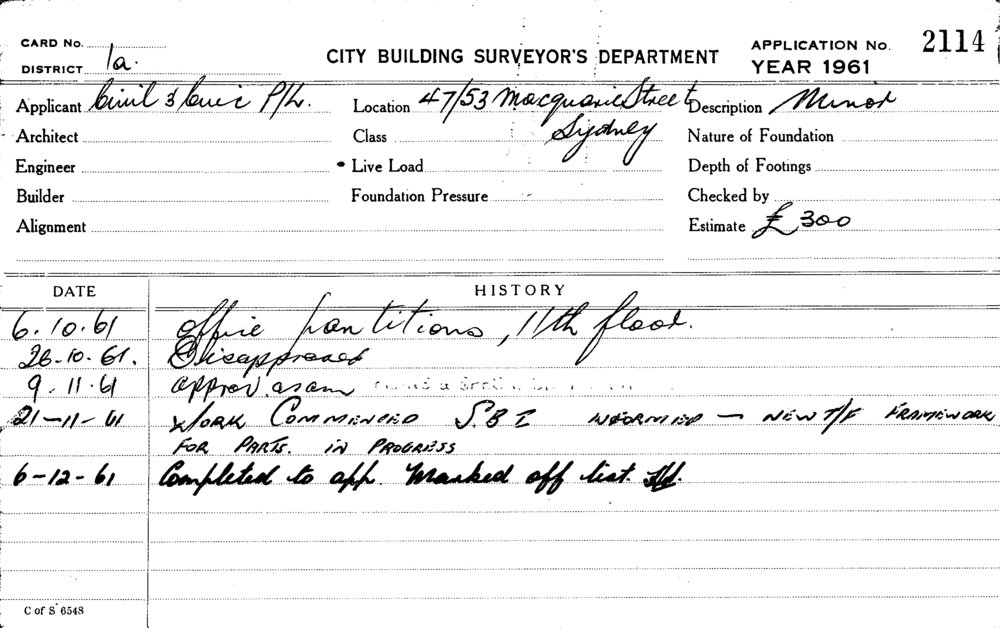 CARD No.
DISTRICT 1a.
CITY BUILDING SURVEYOR'S DEPARTMENT
APPLICATION No. 2114
YEAR 1961
Applicant Civil & Civic P/L.
Location 47/53 Macquarie Street
Sydney
Description Minor
Architect
Class
Nature of Foundation
Engineer
Live Load
Depth of Footings
Builder
Foundation Pressure
Checked by
Alignment
Estimate £300
DATE HISTORY
6.10.61 Office partitions, 11th floor.
26.10.61. Disapproved
9.11.61 approv. as am
21-11-61 WORK COMMENCED S.B.I. INFORMED - NEW T/F FRAMEWORK
FOR PARTS. IN PROGRESS
6-12-61 Completed to app. Marked off list.
C of S 6548